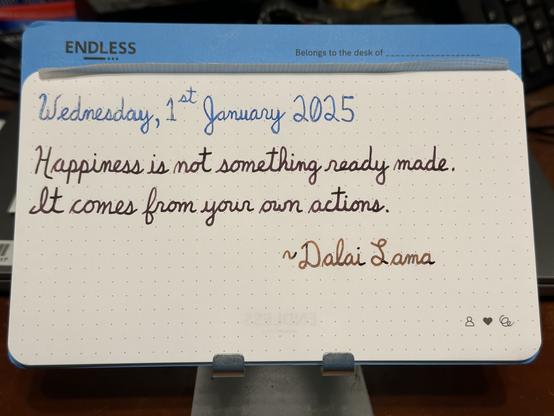 ENDLESS
Belongs to the desk of
Wednesday, 1st January 2025
Happiness is not something ready made.
It comes from your own actions.
~Dalai Lama